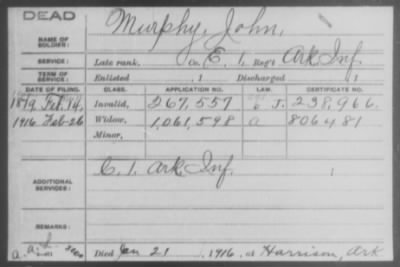 DEAD
NAME OF SOLDIER: Murphy, John,
SERVICE: Late rank, Co. E, 1, Reg't Ark Inf.
TERM OF SERVICE: Enlisted , 1 Discharged , 1
DATE OF FILING. CLASS. APPLICATION NO. LAW. CERTIFICATE NO.
1879 Feb. 14, Invalid, 267,557 J. 238,966.
1916 Feb-26 Widow, 1,061,598 a 806481
Minor,
ADDITIONAL SERVICES: C. 1. Ark Inf.
REMARKS:
Died Jan 21 1916, at Harrison, Ark